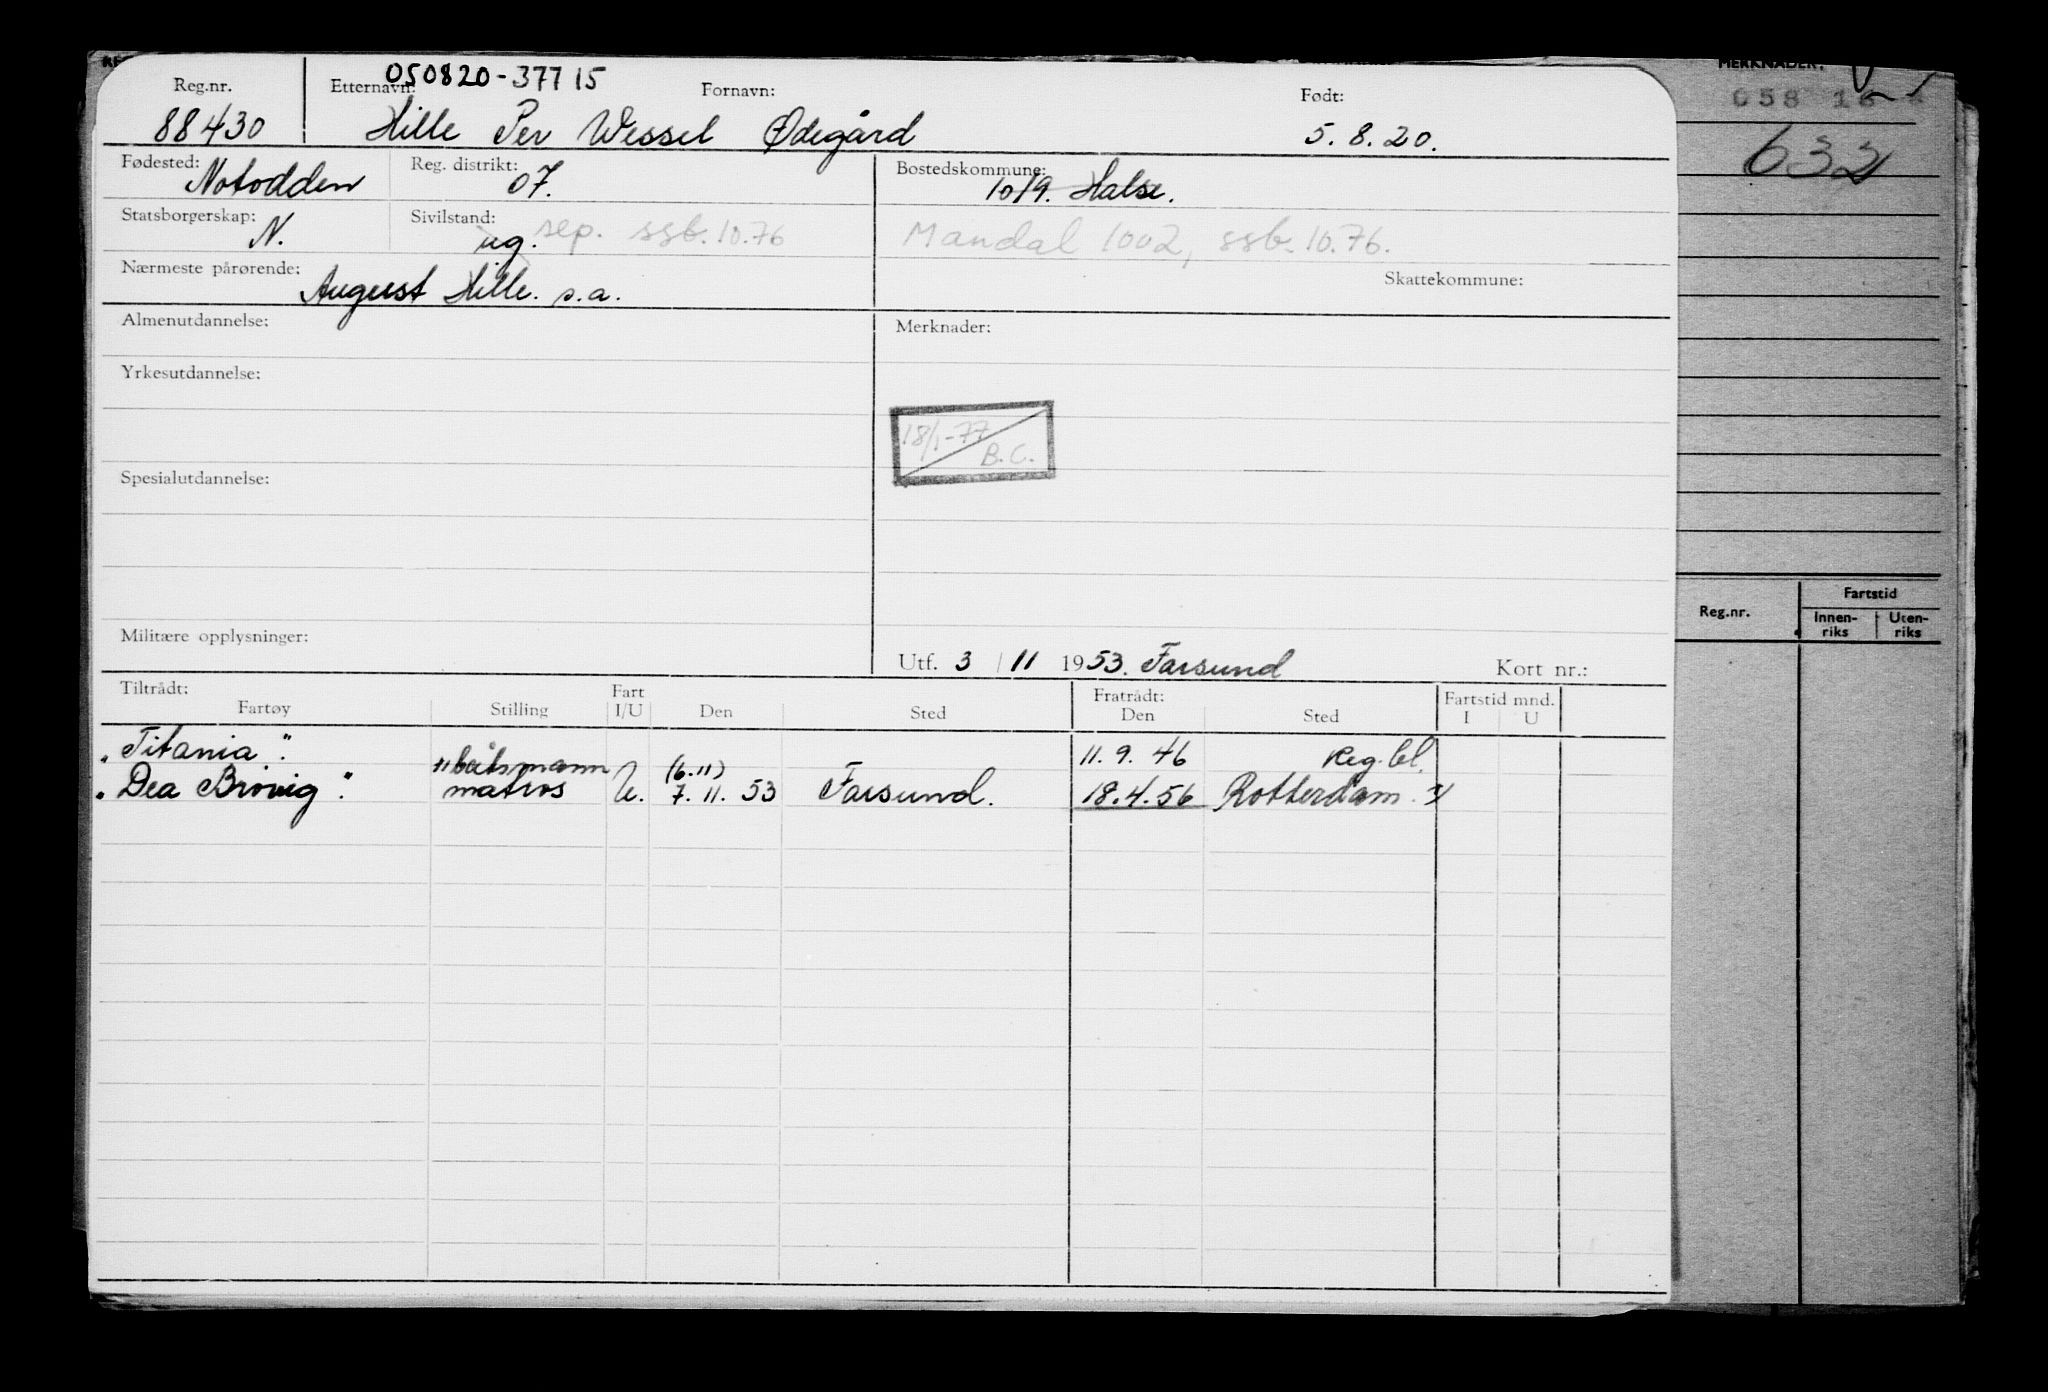 050820-37715
Reg.nr. Etternavn: Fornavn: Født:
88430 Hille Per Wessel Ødegård 5.8.20.
Fødested: Reg. distrikt: Bostedskommune:
Notodden 07. 1019. Halse.
Statsborgerskap: Sivilstand:
N. ug. sep. ssb. 10.76 Mandal 1002, ssb. 10.76.
Nærmeste pårørende: Skattekommune:
August Hille. s.a.
Almenutdannelse: Merknader:
Yrkesutdannelse:
18/1-77
B.C.
Spesialutdannelse:
Militære opplysninger:
Utf. 3 / 11 1953. Farsund Kort nr.:
Tiltrådt: Fratrådt: Fartstid mnd.
Fartøy Stilling Fart I/U Den Sted Den Sted I U
"Titania". 11.9.46 Reg. bl.
båtsmann (6.11)
"Dea Brøvig". matros U. 7.11.53 Farsund. 18.4.56 Rotterdam.
MERKNADER:
058 16
632
Reg.nr. Fartstid
Innen-riks Uten-riks